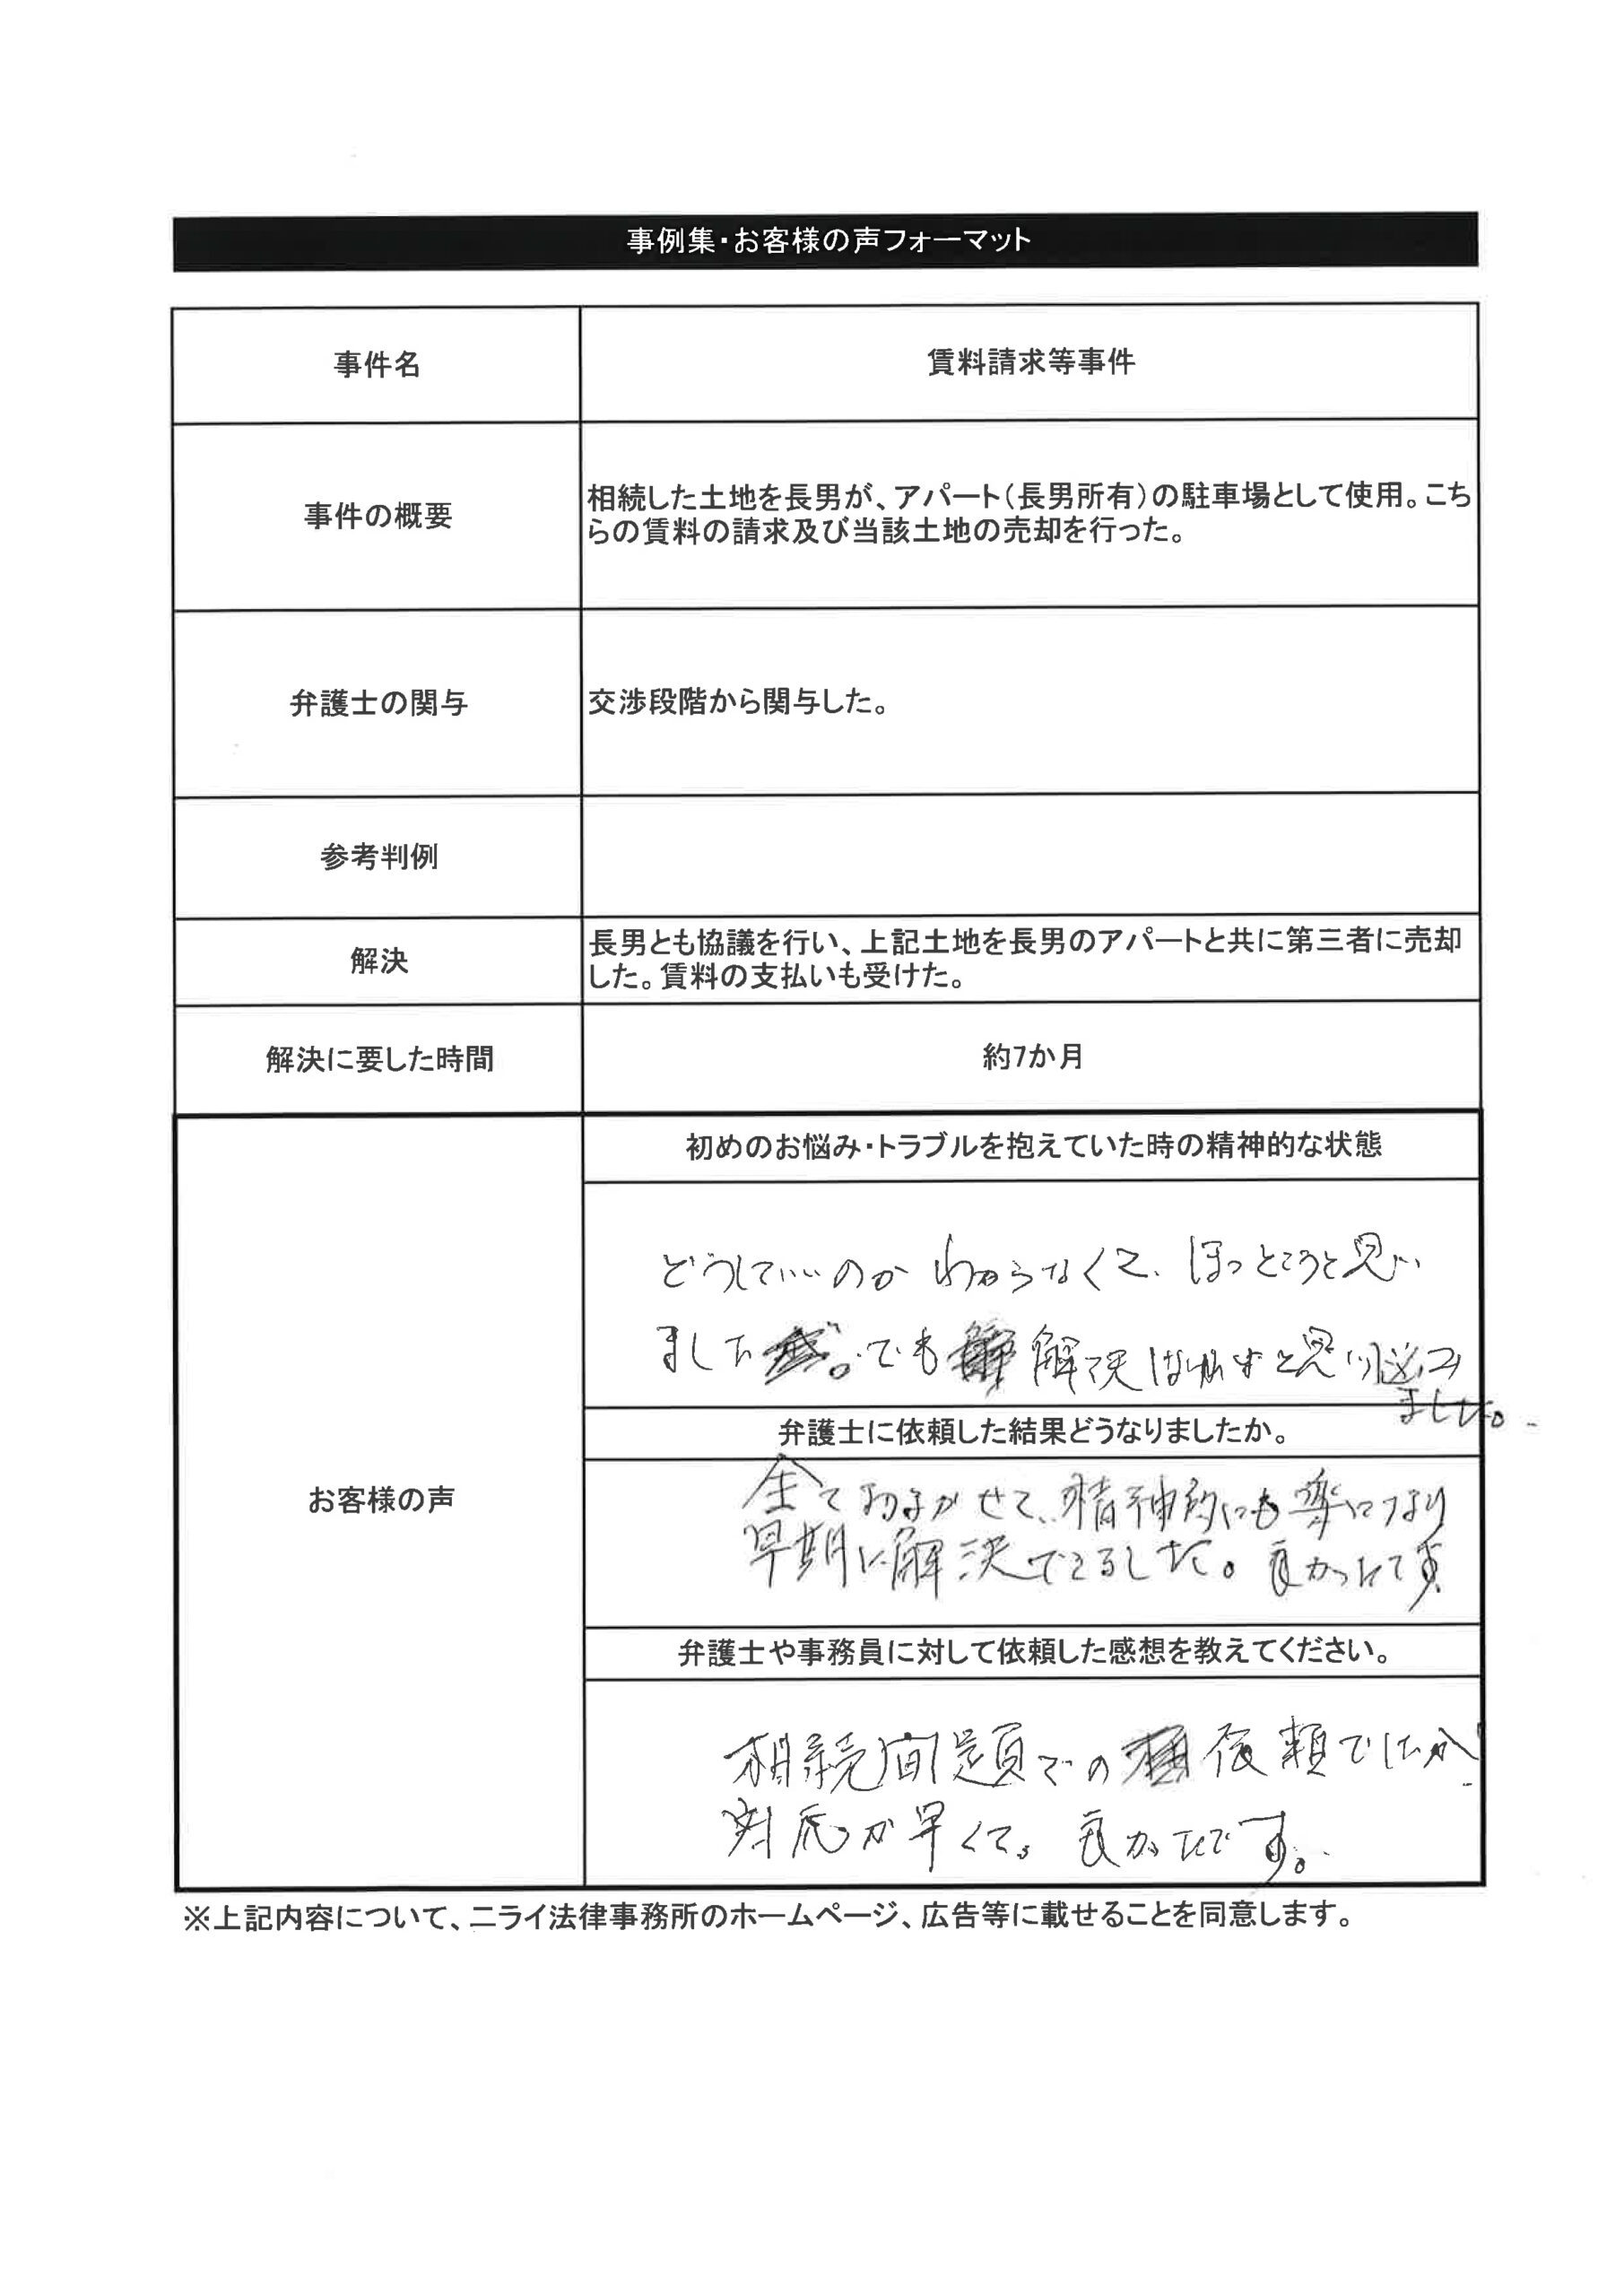 事例集・お客様の声フォーマット
事件名
賃料請求等事件
事件の概要
相続した土地を長男が、アパート(長男所有)の駐車場として使用。こち
らの賃料の請求及び当該土地の売却を行った。
弁護士の関与
交渉段階から関与した。
参考判例
解決
長男とも協議を行い、上記土地を長男のアパートと共に第三者に売却
した。賃料の支払いも受けた。
解決に要した時間
約7か月
お客様の声
初めのお悩み・トラブルを抱えていた時の精神的な状態
どうしていいのかわからなくて、ほっとこうと思い
ました。でも解決はせずと思い悩み
ました。
弁護士に依頼した結果どうなりましたか。
全ておまかせで、精神的にも楽になり
早期に解決できました。良かったです
弁護士や事務員に対して依頼した感想を教えてください。
相続問題での依頼でしたが
対応が早くて。良かったです。
※上記内容について、ニライ法律事務所のホームページ、広告等に載せることを同意します。